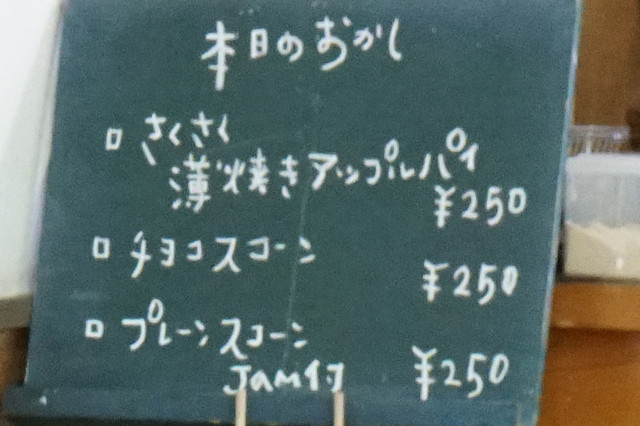 本日のおかし
□ さくさく
薄焼きアップルパイ
¥250
□ チョコスコーン
¥250
□ プレーンスコーン
Jam付 ¥250